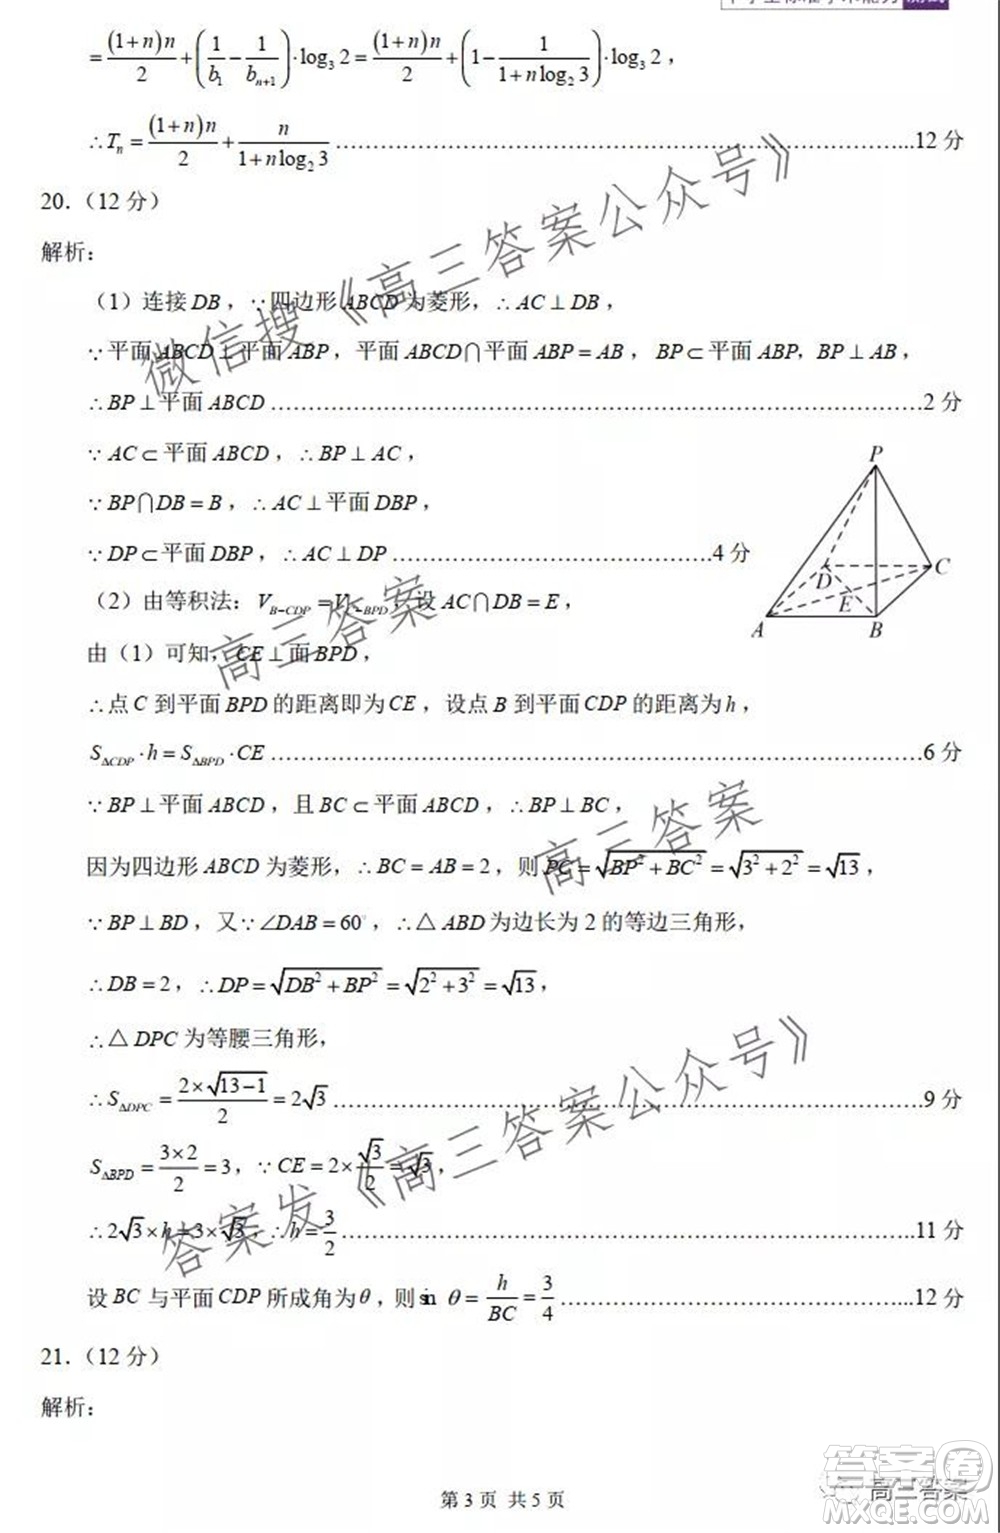 =\frac{(1+n)n}{2}+\left(\frac{1}{b_1}-\frac{1}{b_{n+1}}\right)·log₃2=\frac{(1+n)n}{2}+\left(1-\frac{1}{1+nlog₂3}\right)·log₃2，
∴T_n=\frac{(1+n)n}{2}+\frac{n}{1+nlog₂3}……………………………………………………………...12 分
20.（12 分）
解析：
（1）连接 DB，∵四边形 ABCD 为菱形，∴AC⊥DB，
∵平面 ABCD⊥平面 ABP，平面 ABCD∩平面 ABP=AB，BP⊂平面 ABP，BP⊥AB，
∴BP⊥平面 ABCD……………………………………………………………………2 分
∵AC⊂平面 ABCD，∴BP⊥AC，
∵BP∩DB=B，∴AC⊥平面 DBP，
∵DP⊂平面 DBP，∴AC⊥DP…………………………………4 分
P
D
C
E
A
B
（2）由等积法：V_{B-CDP}=V_{-BPD}，设 AC∩DB=E，
由（1）可知，CE⊥面 BPD，
∴点 C 到平面 BPD 的距离即为 CE，设点 B 到平面 CDP 的距离为 h，
S_{△CDP}·h=S_{△BPD}·CE……………………………………………………………………6 分
∵BP⊥平面 ABCD，且 BC⊂平面 ABCD，∴BP⊥BC，
因为四边形 ABCD 为菱形，∴BC=AB=2，则 PC=\sqrt{BP²+BC²}=\sqrt{3²+2²}=\sqrt{13}，
∵BP⊥BD，又∵∠DAB=60°，∴△ABD 为边长为 2 的等边三角形，
∴DB=2，∴DP=\sqrt{DB²+BP²}=\sqrt{2²+3²}=\sqrt{13}，
∴△DPC 为等腰三角形，
∴S_{△DPC}=\frac{2×\sqrt{13-1}}{2}=2\sqrt{3}………………………………………………………………9 分
S_{△BPD}=\frac{3×2}{2}=3，∵CE=2×\frac{\sqrt{3}}{2}=\sqrt{3}，
∴2\sqrt{3}×h=3×\sqrt{3}，∴h=\frac{3}{2}……………………………………………………………...11 分
设 BC 与平面 CDP 所成角为 θ，则 sin θ=\frac{h}{BC}=\frac{3}{4}……………………………………...12 分
21.（12 分）
解析：
第 3 页 共 5 页
微信搜《高三答案公众号》
高三答案
高三答案
答案发《高三答案公众号》
答案卷
高三答案